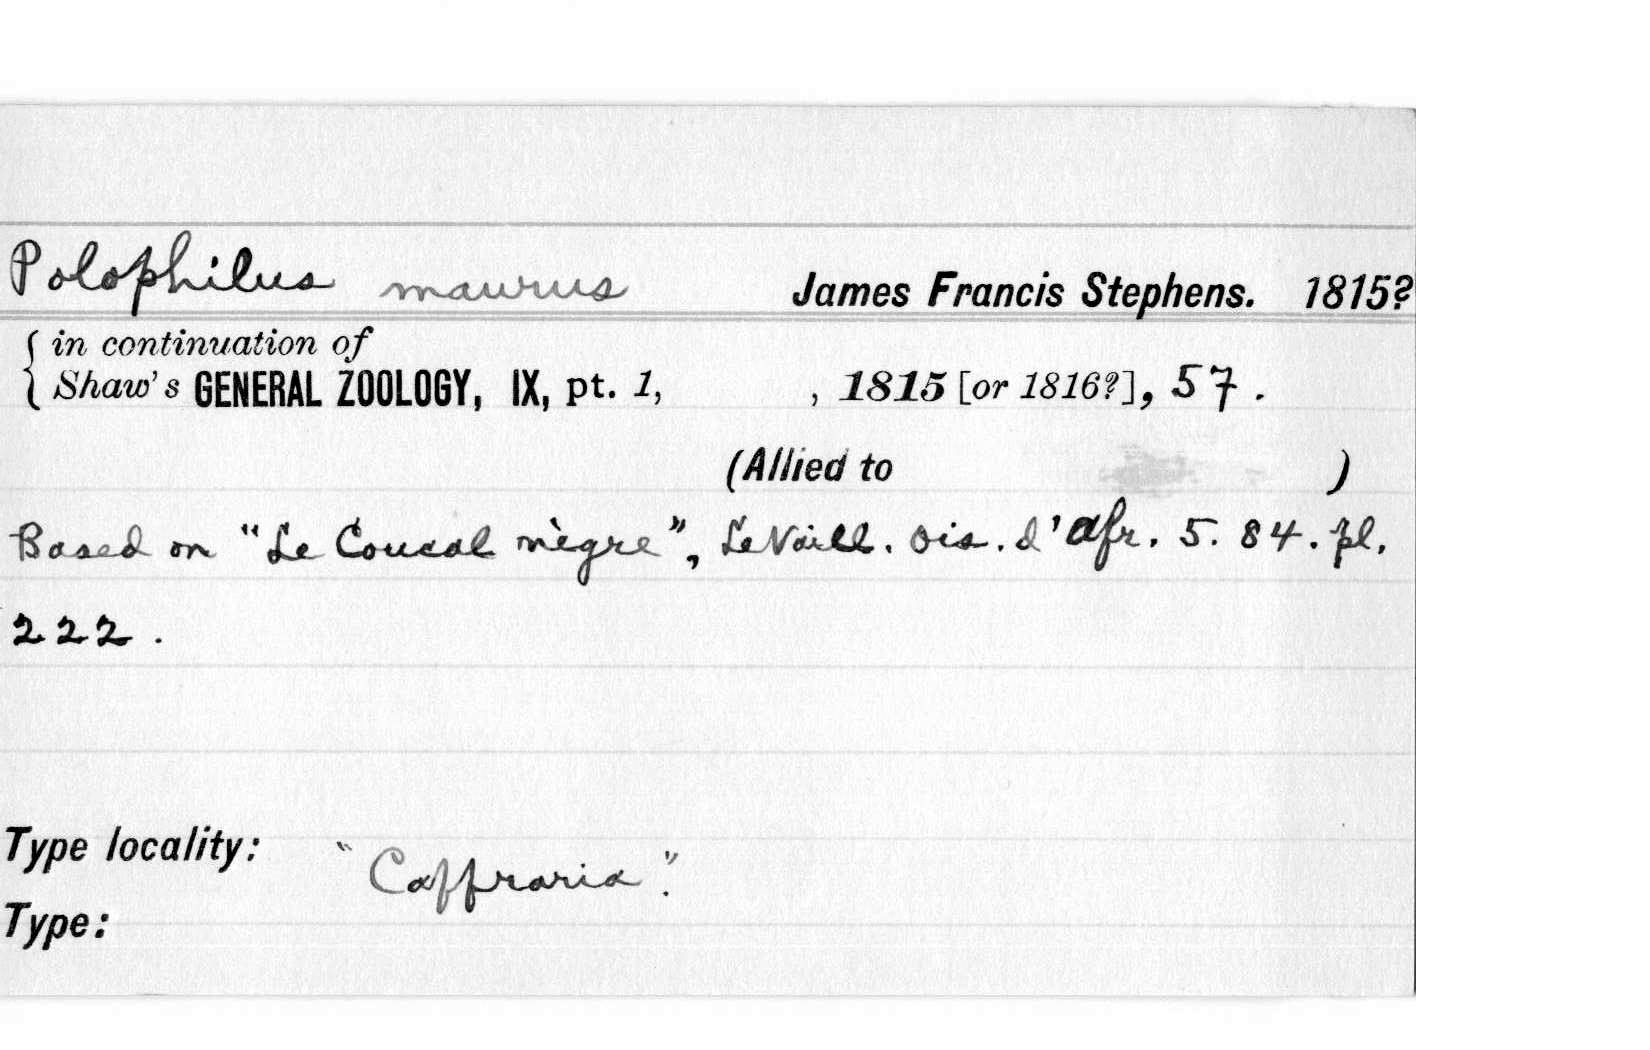 Polophilus maurus James Francis Stephens. 1815?
{ in continuation of
Shaw's GENERAL ZOOLOGY, IX, pt. 1, , 1815 [or 1816?], 57.
(Allied to )
Based on "Le Coucal nègre", LeVaill. Ois. d'Afr. 5. 84. pl.
222.
Type locality: "Caffraria".
Type: